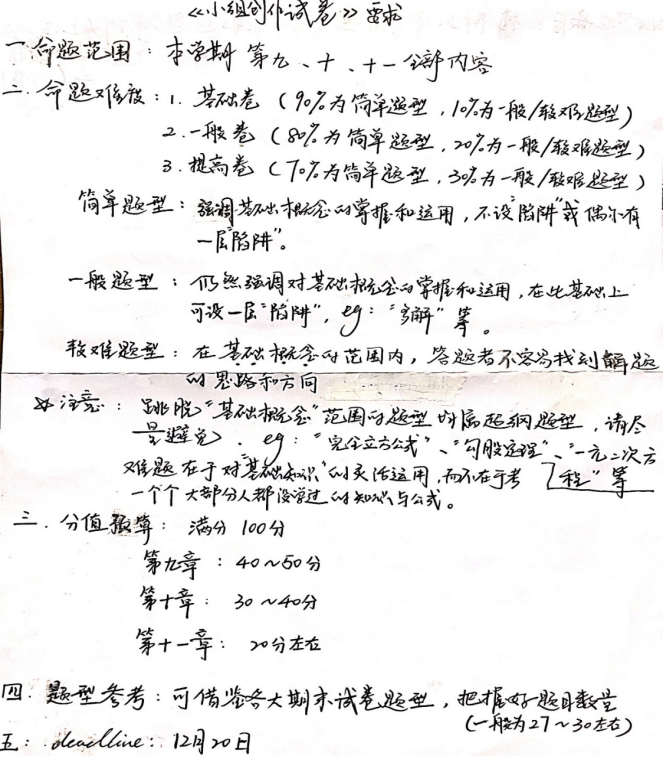 《小组创作试卷》要求
一.命题范围：本学期 第九、十、十一 全部内容
二.命题难度：1. 基础卷（90%为简单题型，10%为一般/较难题型）
2.一般卷（80%为简单题型，20%为一般/较难题型）
3.提高卷（70%为简单题型，30%为一般/较难题型）
简单题型：强调基础概念的掌握和运用，不设"陷阱"或偶尔有
一层"陷阱"。
一般题型：仍然强调对基础概念的掌握和运用，在此基础上
可设一层"陷阱"，eg："多解"等。
较难题型：在基础概念的范围内，答题者不容易找到解题
的思路和方向
注意：跳脱"基础概念"范围的题型 均属超纲题型，请尽
量避免、eg："完全立方公式"、"勾股定理"、"一元二次方
程"等
难题在于对"基础知识"的灵活运用，而不在于考
一个个大部分人都没学过的知识与公式。
三.分值预算：满分100分
第九章：40~50分
第十章：30~40分
第十一章：20分左右
四.题型参考：可借鉴各大期末试卷题型，把握好题目数量
（一般为27~30左右）
五：deadline：12月20日